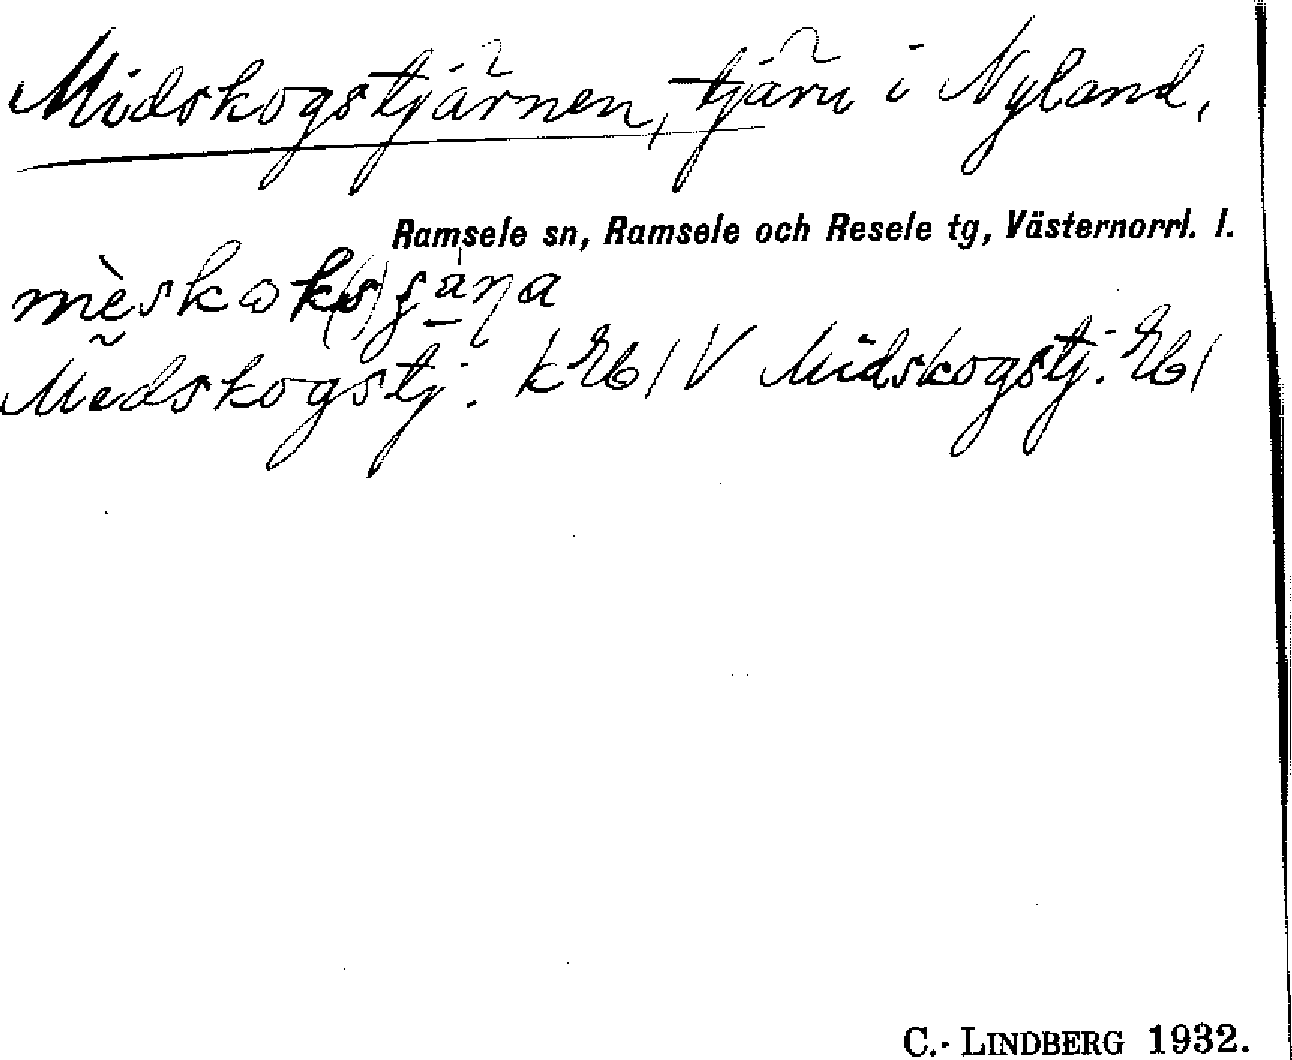 Midskogstjärnen, tjärn i Nyland,
Ramsele sn, Ramsele och Resele tg, Västernorrl. l.
Medskogstj. k Eb1 V Midskogstj. Eb1
C. LINDBERG 1932.